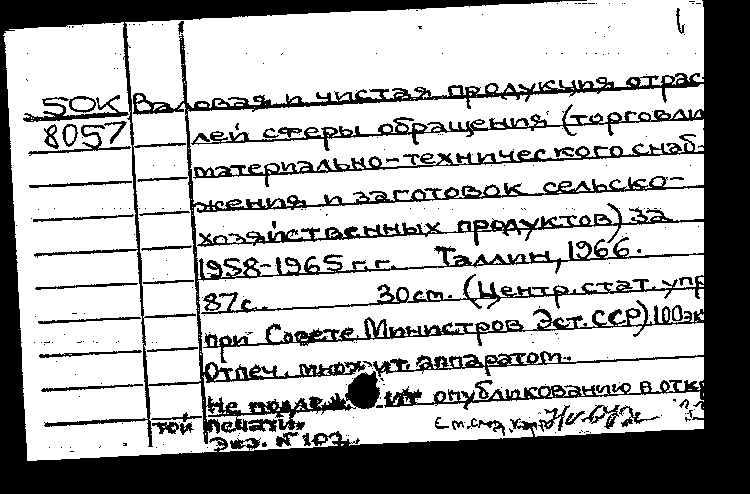 50К Валовая и чистая продукция отрас-
8057 лей сферы обращения (торговли
материально-технического снаб-
жения и заготовок сельско-
хозяйственных продуктов) за
1958-1965 г.г. Таллин, 1966.
87с. 30 см. (Центр. стат. упр
при Совете Министров Эст. ССР). 100 эк
Отпеч. множит. аппаратом.
Не подлежит опубликованию в откр
той печати.
Экз. №
См. след. карт